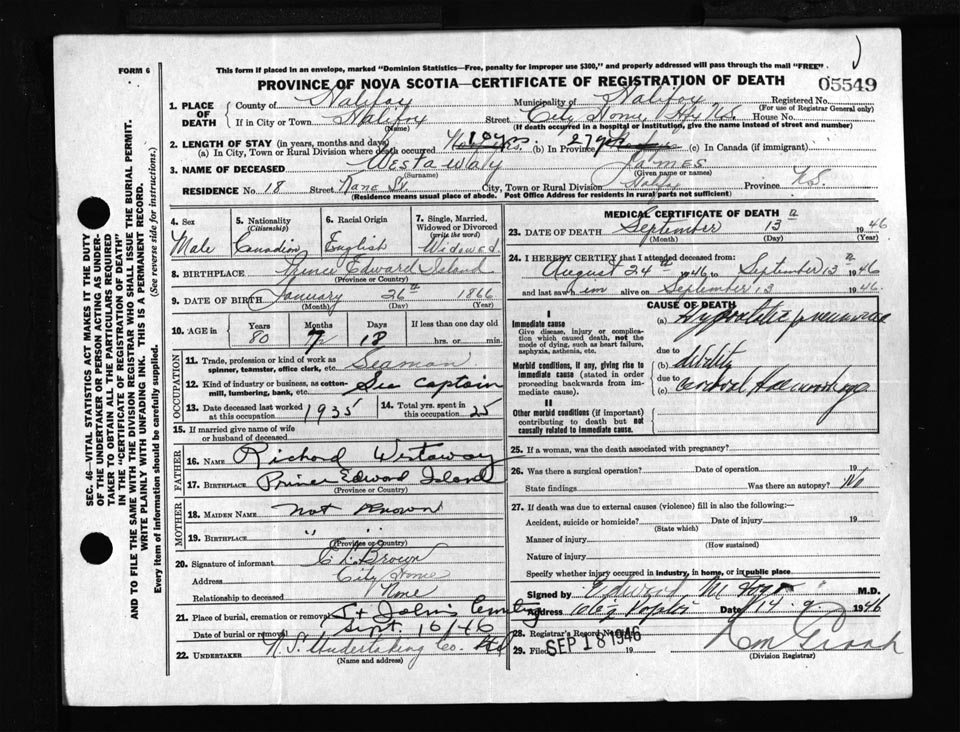 FORM 6
This form if placed in an envelope, marked "Dominion Statistics—Free, penalty for improper use $300," and properly addressed will pass through the mail "FREE"
PROVINCE OF NOVA SCOTIA—CERTIFICATE OF REGISTRATION OF DEATH
05549
1. PLACE OF DEATH { County of Halifax Municipality of Halifax Registered No.
(For use of Registrar General only)
If in City or Town Halifax Street City Home, Hfx N.S. House No.
(Name) (If death occurred in a hospital or institution, give the name instead of street and number)
2. LENGTH OF STAY (in years, months and days)
(a) In City, Town or Rural Division where death occurred (b) In Province (c) In Canada (if immigrant)
3. NAME OF DECEASED Westaway James
(Surname) (Given name or names)
RESIDENCE No. 18 Street Kane St. City, Town or Rural Division Province N.S.
(Residence means usual place of abode. Post Office Address for residents in rural parts not sufficient)
4. Sex Male
5. Nationality (Citizenship) Canadian
6. Racial Origin English
7. Single, Married, Widowed or Divorced (write the word) Widowed
8. BIRTHPLACE Prince Edward Island
(Province or Country)
9. DATE OF BIRTH January 26th 1866
(Month) (Day) (Year)
10. AGE in Years Months Days If less than one day old
80 7 18 hrs. or min.
OCCUPATION
11. Trade, profession or kind of work as spinner, teamster, office clerk, etc. Seaman
12. Kind of industry or business, as cotton-mill, lumbering, bank, etc. Sea Captain
13. Date deceased last worked at this occupation 1935
14. Total yrs. spent in this occupation 25
15. If married give name of wife or husband of deceased
FATHER
16. NAME Richard Westaway
17. BIRTHPLACE Prince Edward Island
(Province or Country)
MOTHER
18. MAIDEN NAME Not Known
19. BIRTHPLACE " "
(Province or Country)
20. Signature of informant Brown
Address City Home
Relationship to deceased None
21. Place of burial, cremation or removal St John's Cemetery
Date of burial or removal Sept. 16/46
22. UNDERTAKER N.S. Undertaking Co. Ltd
(Name and address)
MEDICAL CERTIFICATE OF DEATH
23. DATE OF DEATH September 13th 1946
(Month) (Day) (Year)
24. I HEREBY CERTIFY that I attended deceased from:
August 24th 1946 to September 13th 1946
and last saw him alive on September 13 1946.
CAUSE OF DEATH
I
Immediate cause
Give disease, injury or complication which caused death, not the mode of dying, such as heart failure, asphyxia, asthenia, etc.
(a) Hypostatic pneumonia
due to
Morbid conditions, if any, giving rise to immediate cause (stated in order proceeding backwards from immediate cause).
(b) debility
due to
(c) Cerebral Haemorrhage
II
Other morbid conditions (if important) contributing to death but not causally related to immediate cause.
25. If a woman, was the death associated with pregnancy?
26. Was there a surgical operation? Date of operation 19
State findings Was there an autopsy? No
27. If death was due to external causes (violence) fill in also the following:—
Accident, suicide or homicide? Date of injury 19
(State which)
Manner of injury
(How sustained)
Nature of injury
Specify whether injury occurred in industry, in home, or in public place
Signed by M.D.
Address Date 14 9 1946
28. Registrar's Record Number
29. Filed SEP 18 1946 19
(Division Registrar)
SEC. 46—VITAL STATISTICS ACT MAKES IT THE DUTY
OF THE UNDERTAKER OR PERSON ACTING AS UNDER-
TAKER TO OBTAIN ALL THE PARTICULARS REQUIRED
IN THE "CERTIFICATE OF REGISTRATION OF DEATH"
AND TO FILE THE SAME WITH THE DIVISION REGISTRAR WHO SHALL ISSUE THE BURIAL PERMIT.
WRITE PLAINLY WITH UNFADING INK. THIS IS A PERMANENT RECORD.
Every item of information should be carefully supplied. (See reverse side for instructions.)